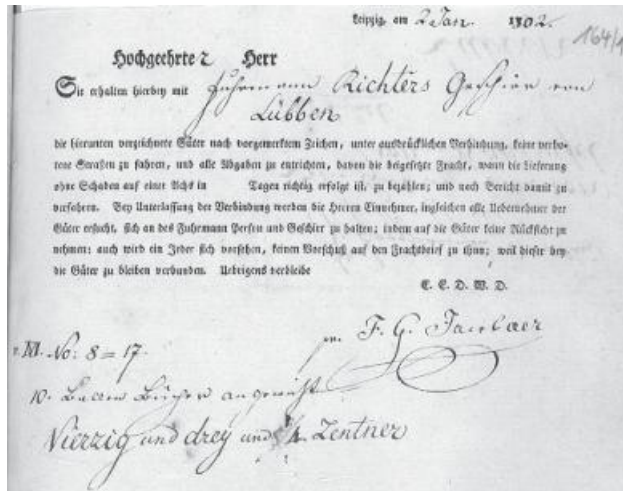 Leipzig, am 2 Jan. 1802.
164/1
Hochgeehrter Herr
Sie erhalten hierbey mit Fuhrmann Richters Geschirr von
Lübben
die hierunten verzeichnete Güter nach vorgemerktem Zeichen, unter ausdrücklichen Verbindung, keine verbo-
tene Straßen zu fahren, und alle Abgaben zu entrichten, davon die beigesetzte Fracht, wann die Lieferung
ohne Schaden auf einer Achs in Tagen richtig erfolgt ist, zu bezahlen; und nach Bericht damit zu
verfahren. Bey Unterlassung der Verbindung werden die Herren Einnehmer, ingleichen alle Uebernehmer der
Güter ersucht, sich an des Fuhrmann Person und Geschirr zu halten; indem auf die Güter keine Rücksicht zu
nehmen: auch wird ein Jeder sich vorsehen, keinen Vorschuß auf den Frachtbrief zu thun; weil dieser bey
die Güter zu bleiben verbunden. Uebrigens verbleibe
E. E. D. W. D.
F. G.
No: 8=17.
10. Ballen Bücher
Vierzig und drey und 1/4. Zentner